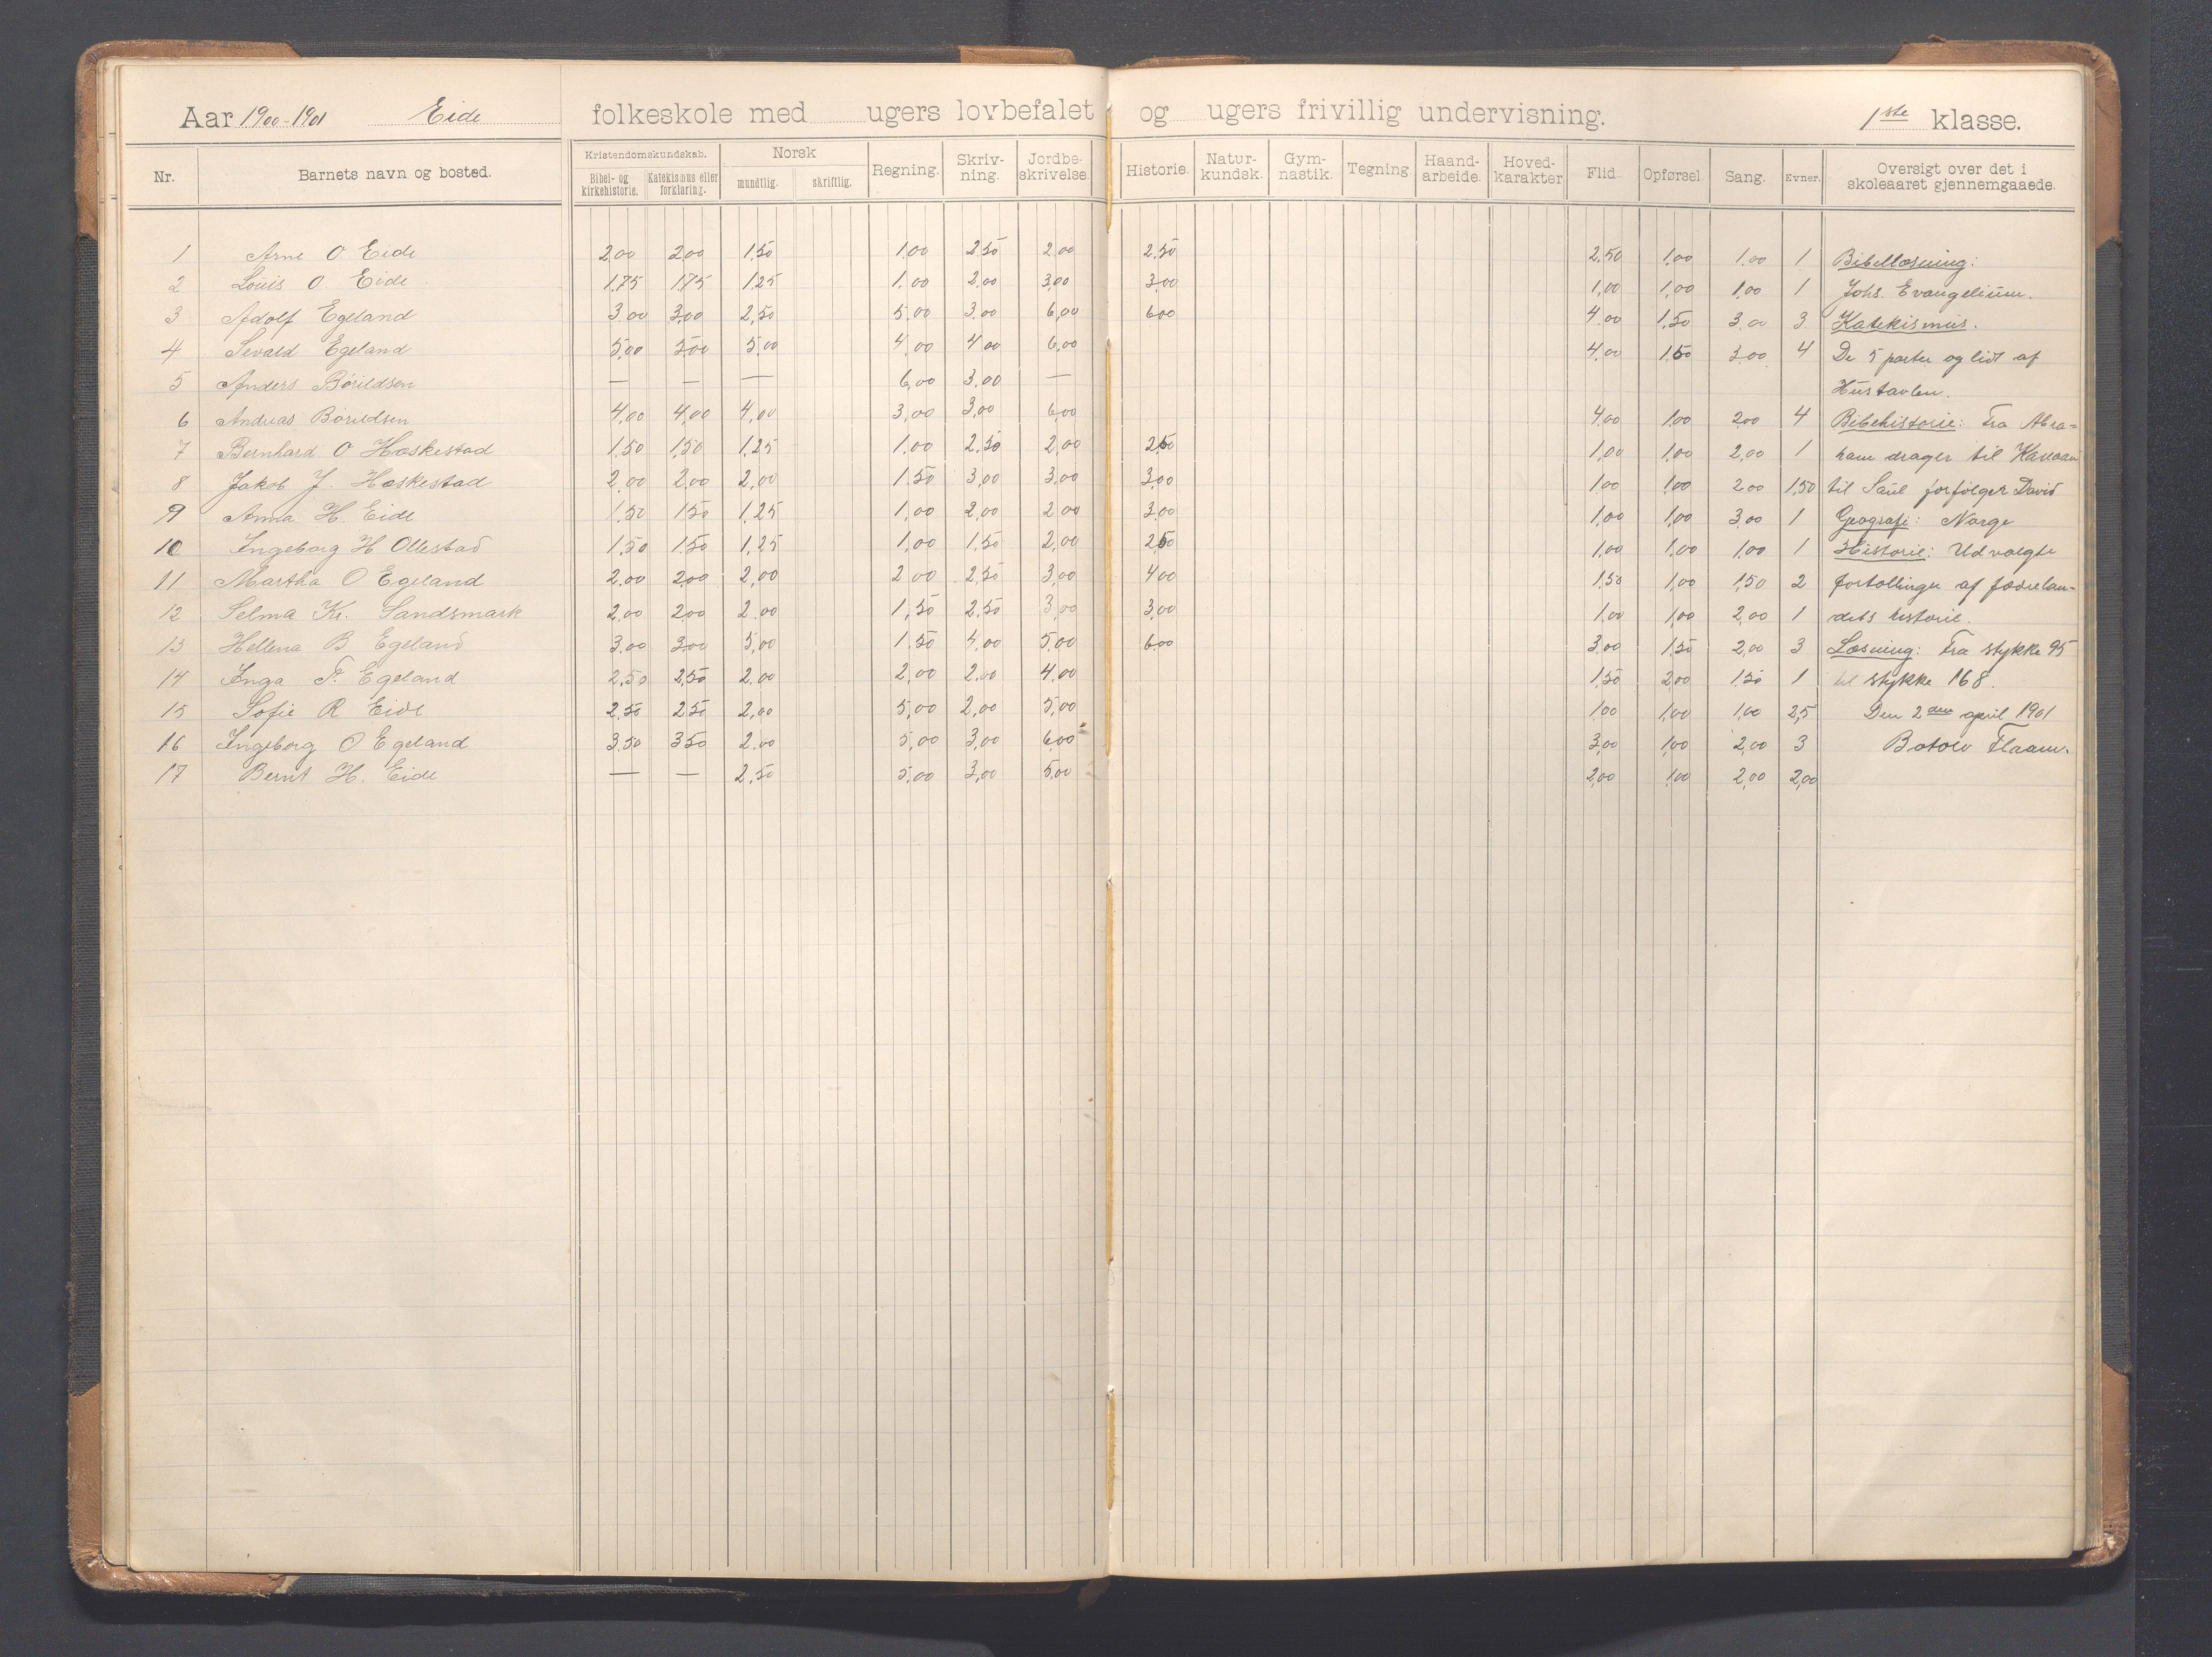 Aar 1900-1901 Eide folkeskole med ugers lovbefalet og ugers frivillig undervisning. 1ste klasse.
Nr. Barnets navn og bosted. Kristendomskundskab. Bibel- og kirkehistorie. Katekismus eller forklaring. Norsk mundtlig. skriftlig. Regning. Skriv-ning. Jordbe-skrivelse. Historie. Natur-kundsk. Gym-nastik. Tegning. Haand-arbeide. Hoved-karakter Flid. Opførsel. Sang. Evner. Oversigt over det i skoleaaret gjennemgaaede.
1 Arne O Eide 2,00 2,00 1,50 1,00 2,50 2,00 2,50 2,50 1,00 1,00 1 Bibellæsning:
2 Louis O. Eide 1,75 1,75 1,25 1,00 2,00 3,00 3,00 1,00 1,00 1,00 1 Johs. Evangelium.
3 Adolf Egeland 3,00 3,00 2,50 5,00 3,00 6,00 6,00 4,00 1,50 3,00 3 Katekismus.
4 Sevald Egeland 5,00 5,00 5,00 4,00 4,00 6,00 4,00 1,50 3,00 4 De 5 parter og lidt af
5 Anders Børildsen — — — 6,00 3,00 — Hustavlen.
6 Andreas Børildsen 4,00 4,00 4,00 3,00 3,00 6,00 4,00 1,00 2,00 4 Bibehistorie: Fra Abra=
7 Bernhard O Hæskestad 1,50 1,50 1,25 1,00 2,50 2,00 2,50 1,00 1,00 2,00 1 ham drager til Kanaan
8 Jakob J. Hæskestad 2,00 2,00 2,00 1,50 3,00 3,00 3,00 1,00 1,00 2,00 1,50 til Saul forfølger David
9 Anna H. Eide 1,50 1,50 1,25 1,00 2,00 2,00 3,00 1,00 1,00 3,00 1 Geografi: Norge
10 Ingeborg H Ollestad 1,50 1,50 1,25 1,00 1,50 2,00 2,50 1,00 1,00 1,00 1 Historie: Udvalgte
11 Martha O Egeland 2,00 2,00 2,00 2,00 2,50 3,00 4,00 1,50 1,00 1,50 2 fortællinger af fædrelan-
12 Selma Kr. Sandsmark 2,00 2,00 2,00 1,50 2,50 3,00 3,00 1,00 1,00 2,00 1 dets historie.
13 Hellena B Egeland 3,00 3,00 5,00 1,50 4,00 5,00 6,00 3,00 1,50 2,00 3 Læsning: Fra stykke 95
14 Inga T. Egeland 2,50 2,50 2,00 2,00 2,00 4,00 1,50 2,00 1,50 1 til stykke 168.
15 Sofie R Eide 2,50 2,50 2,00 5,00 2,00 5,00 1,00 1,00 1,00 2,5 Den 2den april 1901
16 Ingeborg O Egeland 3,50 3,50 2,00 5,00 3,00 6,00 3,00 1,00 2,00 3 Botolv Flaam.
17 Bernt H. Eide — — 2,50 5,00 3,00 5,00 2,00 1,00 2,00 2,00